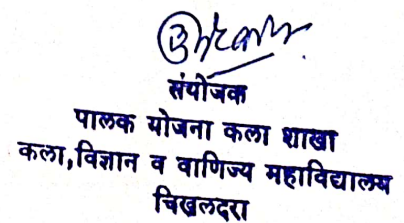 संयोजक
पालक योजना कला शाखा
कला,विज्ञान व वाणिज्य महाविद्यालय
चिखलदरा